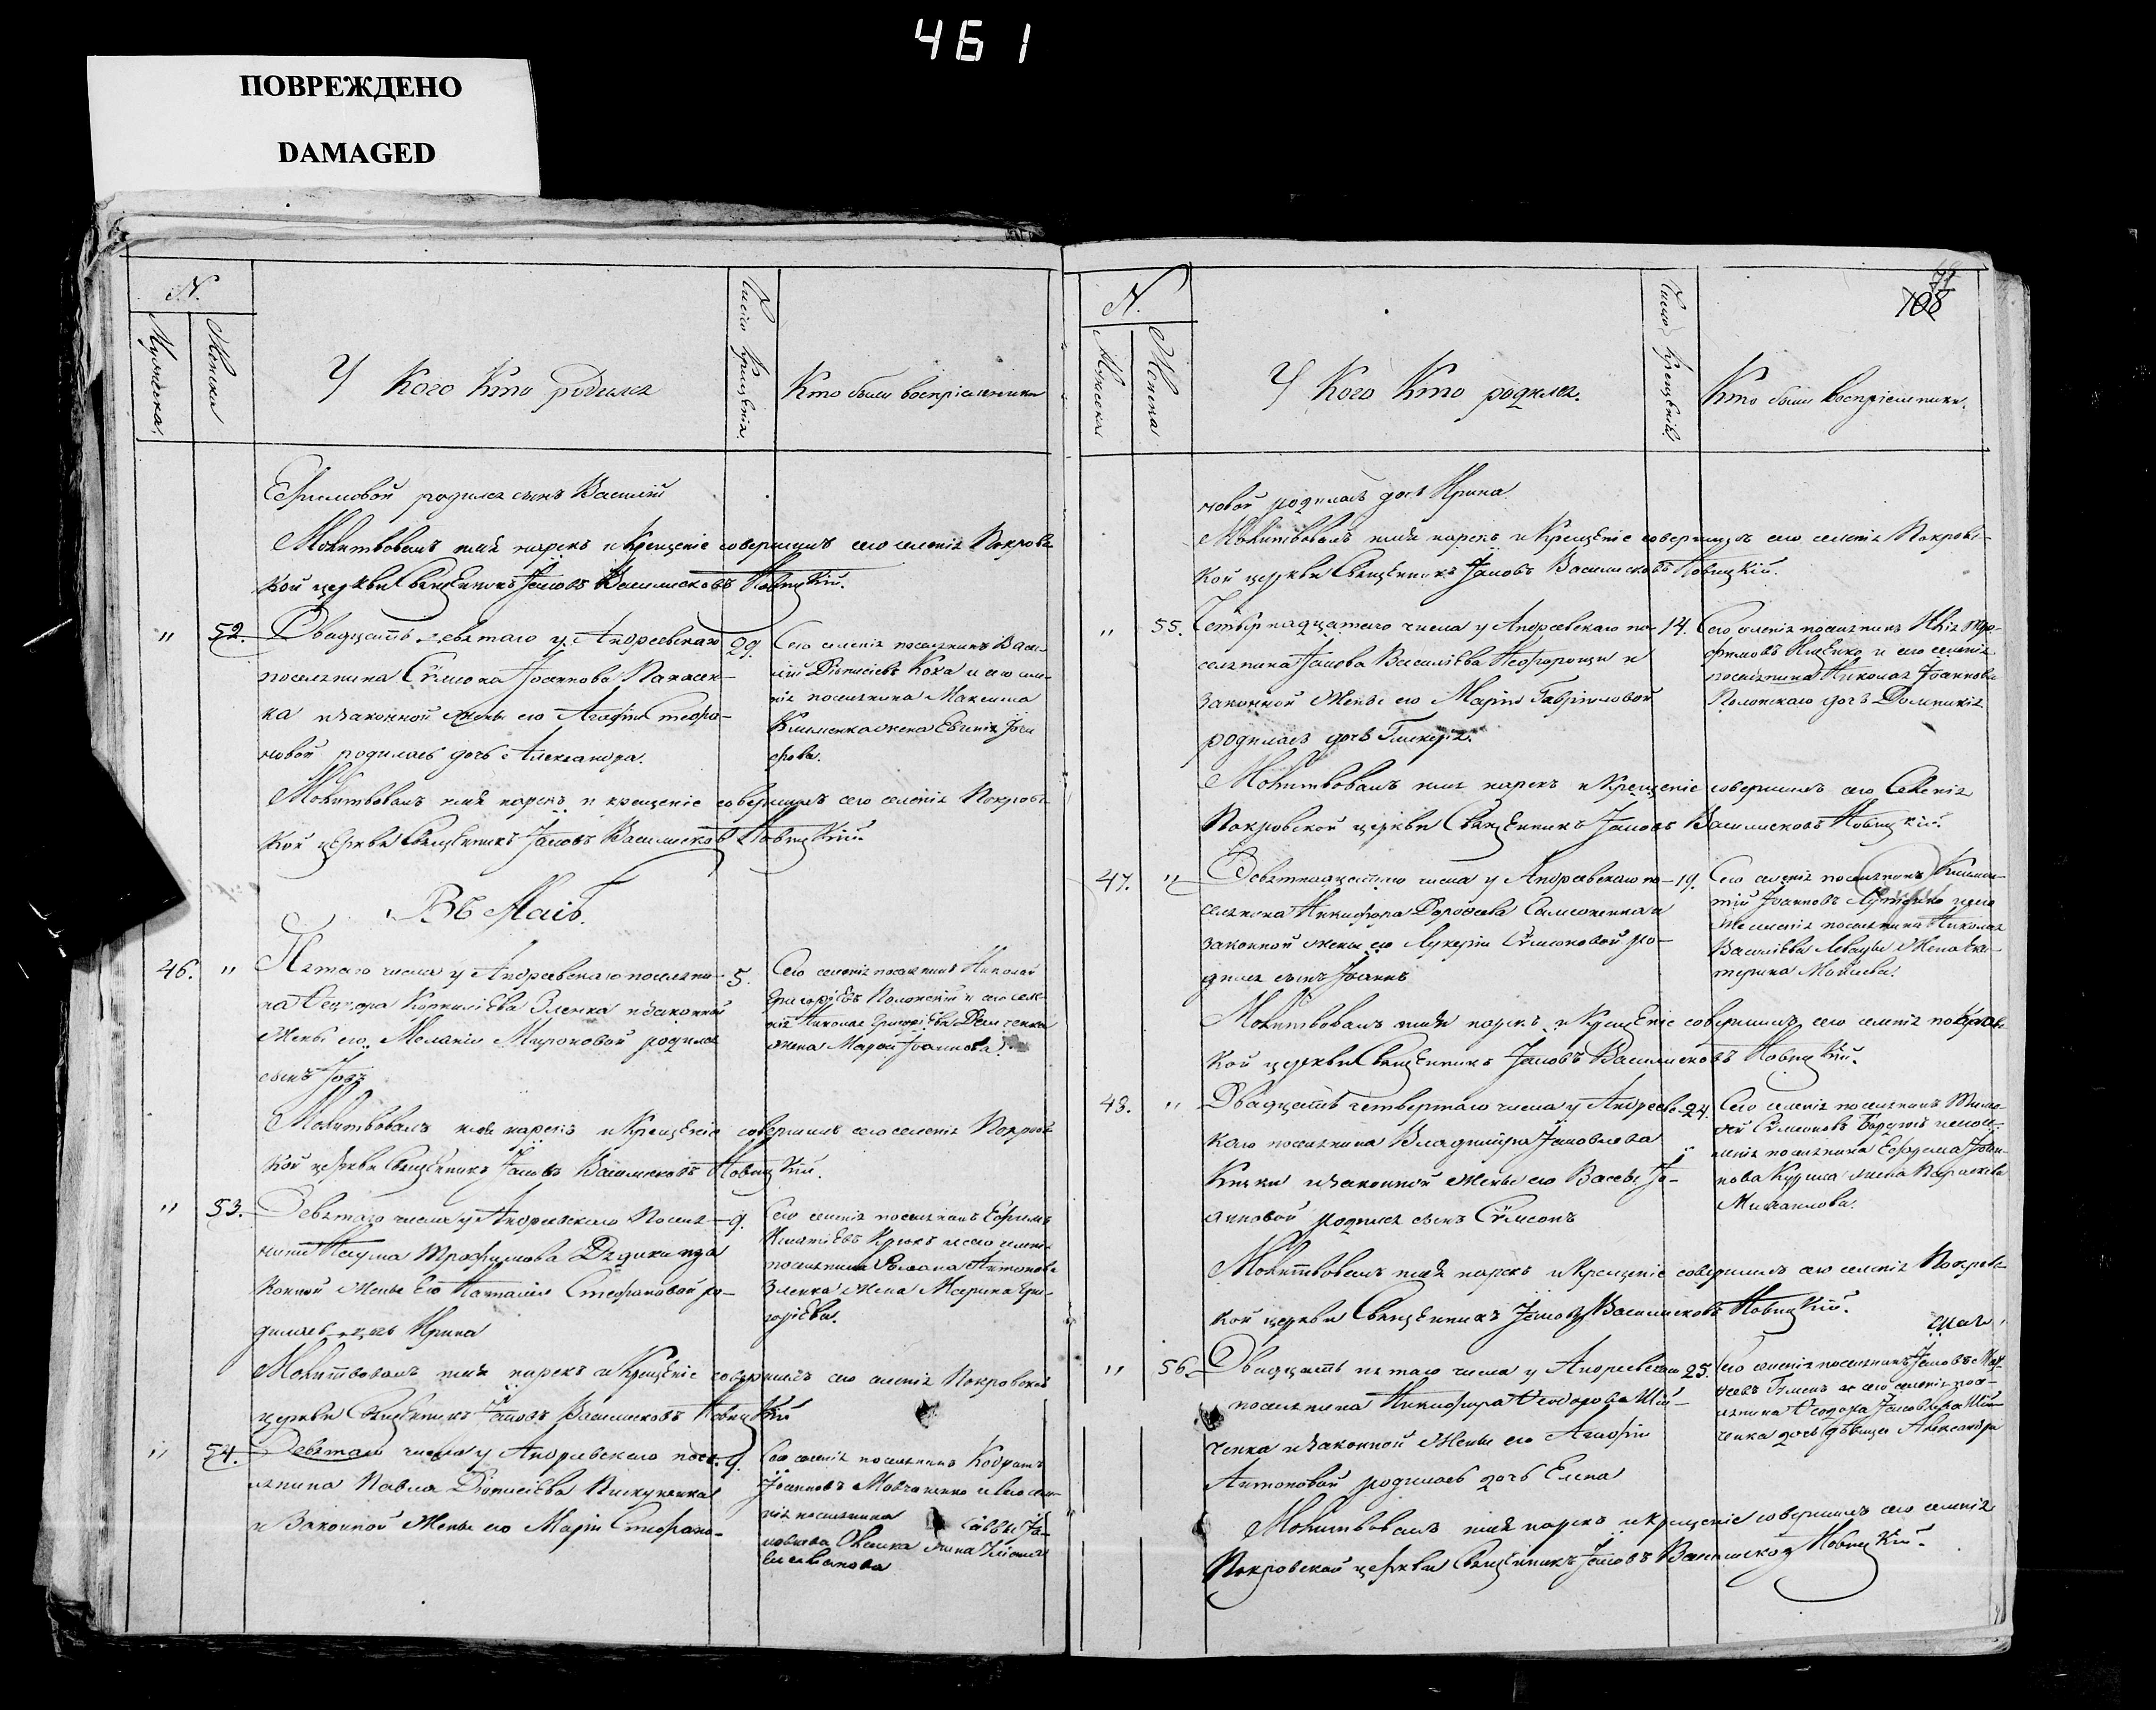 461
ПОВРЕЖДЕНО
DAMAGED
N.
Мужеска.
Женска
У Кого Кто родился
Число Крещенія.
Кто были воспріемники
Ефимовой родился сынъ Василій
Молитвовалъ имя нарекъ и Крещеніе совершилъ сего селенія Покровс
кой церкви Священникъ Іаковъ Васильковъ Новицкій.
" 52. Двадцать девятаго у Андреевскаго
поселянина Сѵмеона Іоаннова Панасен-
ка и законной жены его Агафіи Стефа-
новой родилась дочь Александра.
29.
Сего селенія поселянинъ Васи-
лій Діонисіевъ Коха и сего селе-
нія поселянина Максима
жена Евгенія
Молитвовалъ имя нарекъ и крещеніе совершилъ сего селенія Покровс-
кой церкви Священникъ Іаковъ Васильковъ Новицкій.
Въ Маіѣ.
46. " Пятаго числа у Андреевскаго поселяни-
на Ѳеодора Корнилієва Зленка и законной
жены его Меланіи Мироновой родился
сынъ Іовъ
5.
Сего селенія поселянинъ Николай
Григоріевъ Полонскій и сего селе-
нія Николая Григоріева Демченка
жена Марѳа Іоаннова.
Молитвовалъ имя нарекъ и Крещеніе совершилъ сего селенія Покровс
кой церкви Священникъ Іаковъ Васильковъ Новицкій.
" 53. Девятаго числа у Андреевскаго Поселя-
нина Наума Трофимова Дядика и за
конной жены его Наталіи Стефановой ро-
дилась дочь Ирина
9.
Сего селенія поселянинъ Ефимъ
Игнатіевъ Крюкъ и сего селенія
поселянина Романа Антонова
Зленка жена Марина Гри-
горіева.
Молитвовалъ имя нарекъ и Крещеніе совершилъ сего селенія Покровской
церкви Священникъ Іаковъ Васильковъ Новицкій
" 54. Девятаго числа у Андреевскаго посе-
лянина Павла Діонисіева Пискуненка
и Законной жены его Маріи Стефано-
9.
Сего селенія поселянинъ Кодратъ
Іоанновъ Мовчаненко и сего селе-
нія поселянина Саввы Іа-
ковлева жена
N.
Мужеска
Женска
У Кого Кто родился.
Число Крещенія.
Кто были Воспріемники.
108
новой родилась дочь Ирина
Молитвовалъ имя нарекъ и Крещеніе совершилъ сего селенія Покровс-
кой церкви Священникъ Іаковъ Васильковъ Новицкій.
" 55. Четырнадцатаго числа у Андреевскаго по-
селянина Іакова Василіева Нефорощи и
законной жены его Маріи Гавріиловой
родилась дочь Гликерія.
14.
Сего селенія поселянинъ
и сего селенія
поселянина Николая Іоаннова
Полонскаго дочь Домникія
Молитвовалъ имя нарекъ и Крещеніе совершилъ сего Селенія
Покровской церкви Священникъ Іаковъ Васильковъ Новицкій.
47. " Девятнадцатаго числа у Андреевскаго по-
селянина Никифора Дороѳеева Самсоненка и
законной жены его Лукеріи Сѵмеоновой ро-
дился сынъ Іоаннъ
19.
Сего селенія поселянинъ Климен-
тій Іоанновъ и сего
же селенія поселянина Николая
Василіева жена Ека-
терина Моѵсеева.
Молитвовалъ имя нарекъ и Крещеніе совершилъ сего селенія покровс
кой церкви Священникъ Іаковъ Васильковъ Новицкій.
48. " Двадцать четвертаго числа у Андреевс-
каго поселянина Владиміра Іаковлева
Кички и законной жены его Вассы Іо-
анновой родился сынъ Сѵмеонъ
24.
Сего селенія поселянинъ Тимо-
ѳей Сѵмеоновъ и сего се-
ленія поселянина Ефрема Іоан-
нова Кудина жена Параскева
Михаилова.
Молитвовалъ имя нарекъ и Крещеніе совершилъ сего селенія Покровс-
кой церкви Священникъ Іаковъ Васильковъ Новицкій.
" 56. Двадцать пятаго числа у Андреевскаго
поселянина Никифора Ѳеодорова Шѵй-
ченка и законной жены его Агафіи
Антоновой родилась дочь Елена
25.
Сего селенія поселянинъ Іаковъ
и сего селенія посе-
лянина Ѳеодора Іаковлева
ченка дочь дѣвица Александра
Молитвовалъ имя нарекъ и крещеніе совершилъ сего селенія
Покровской церкви Священникъ Іаковъ Васильковъ Новицкій.